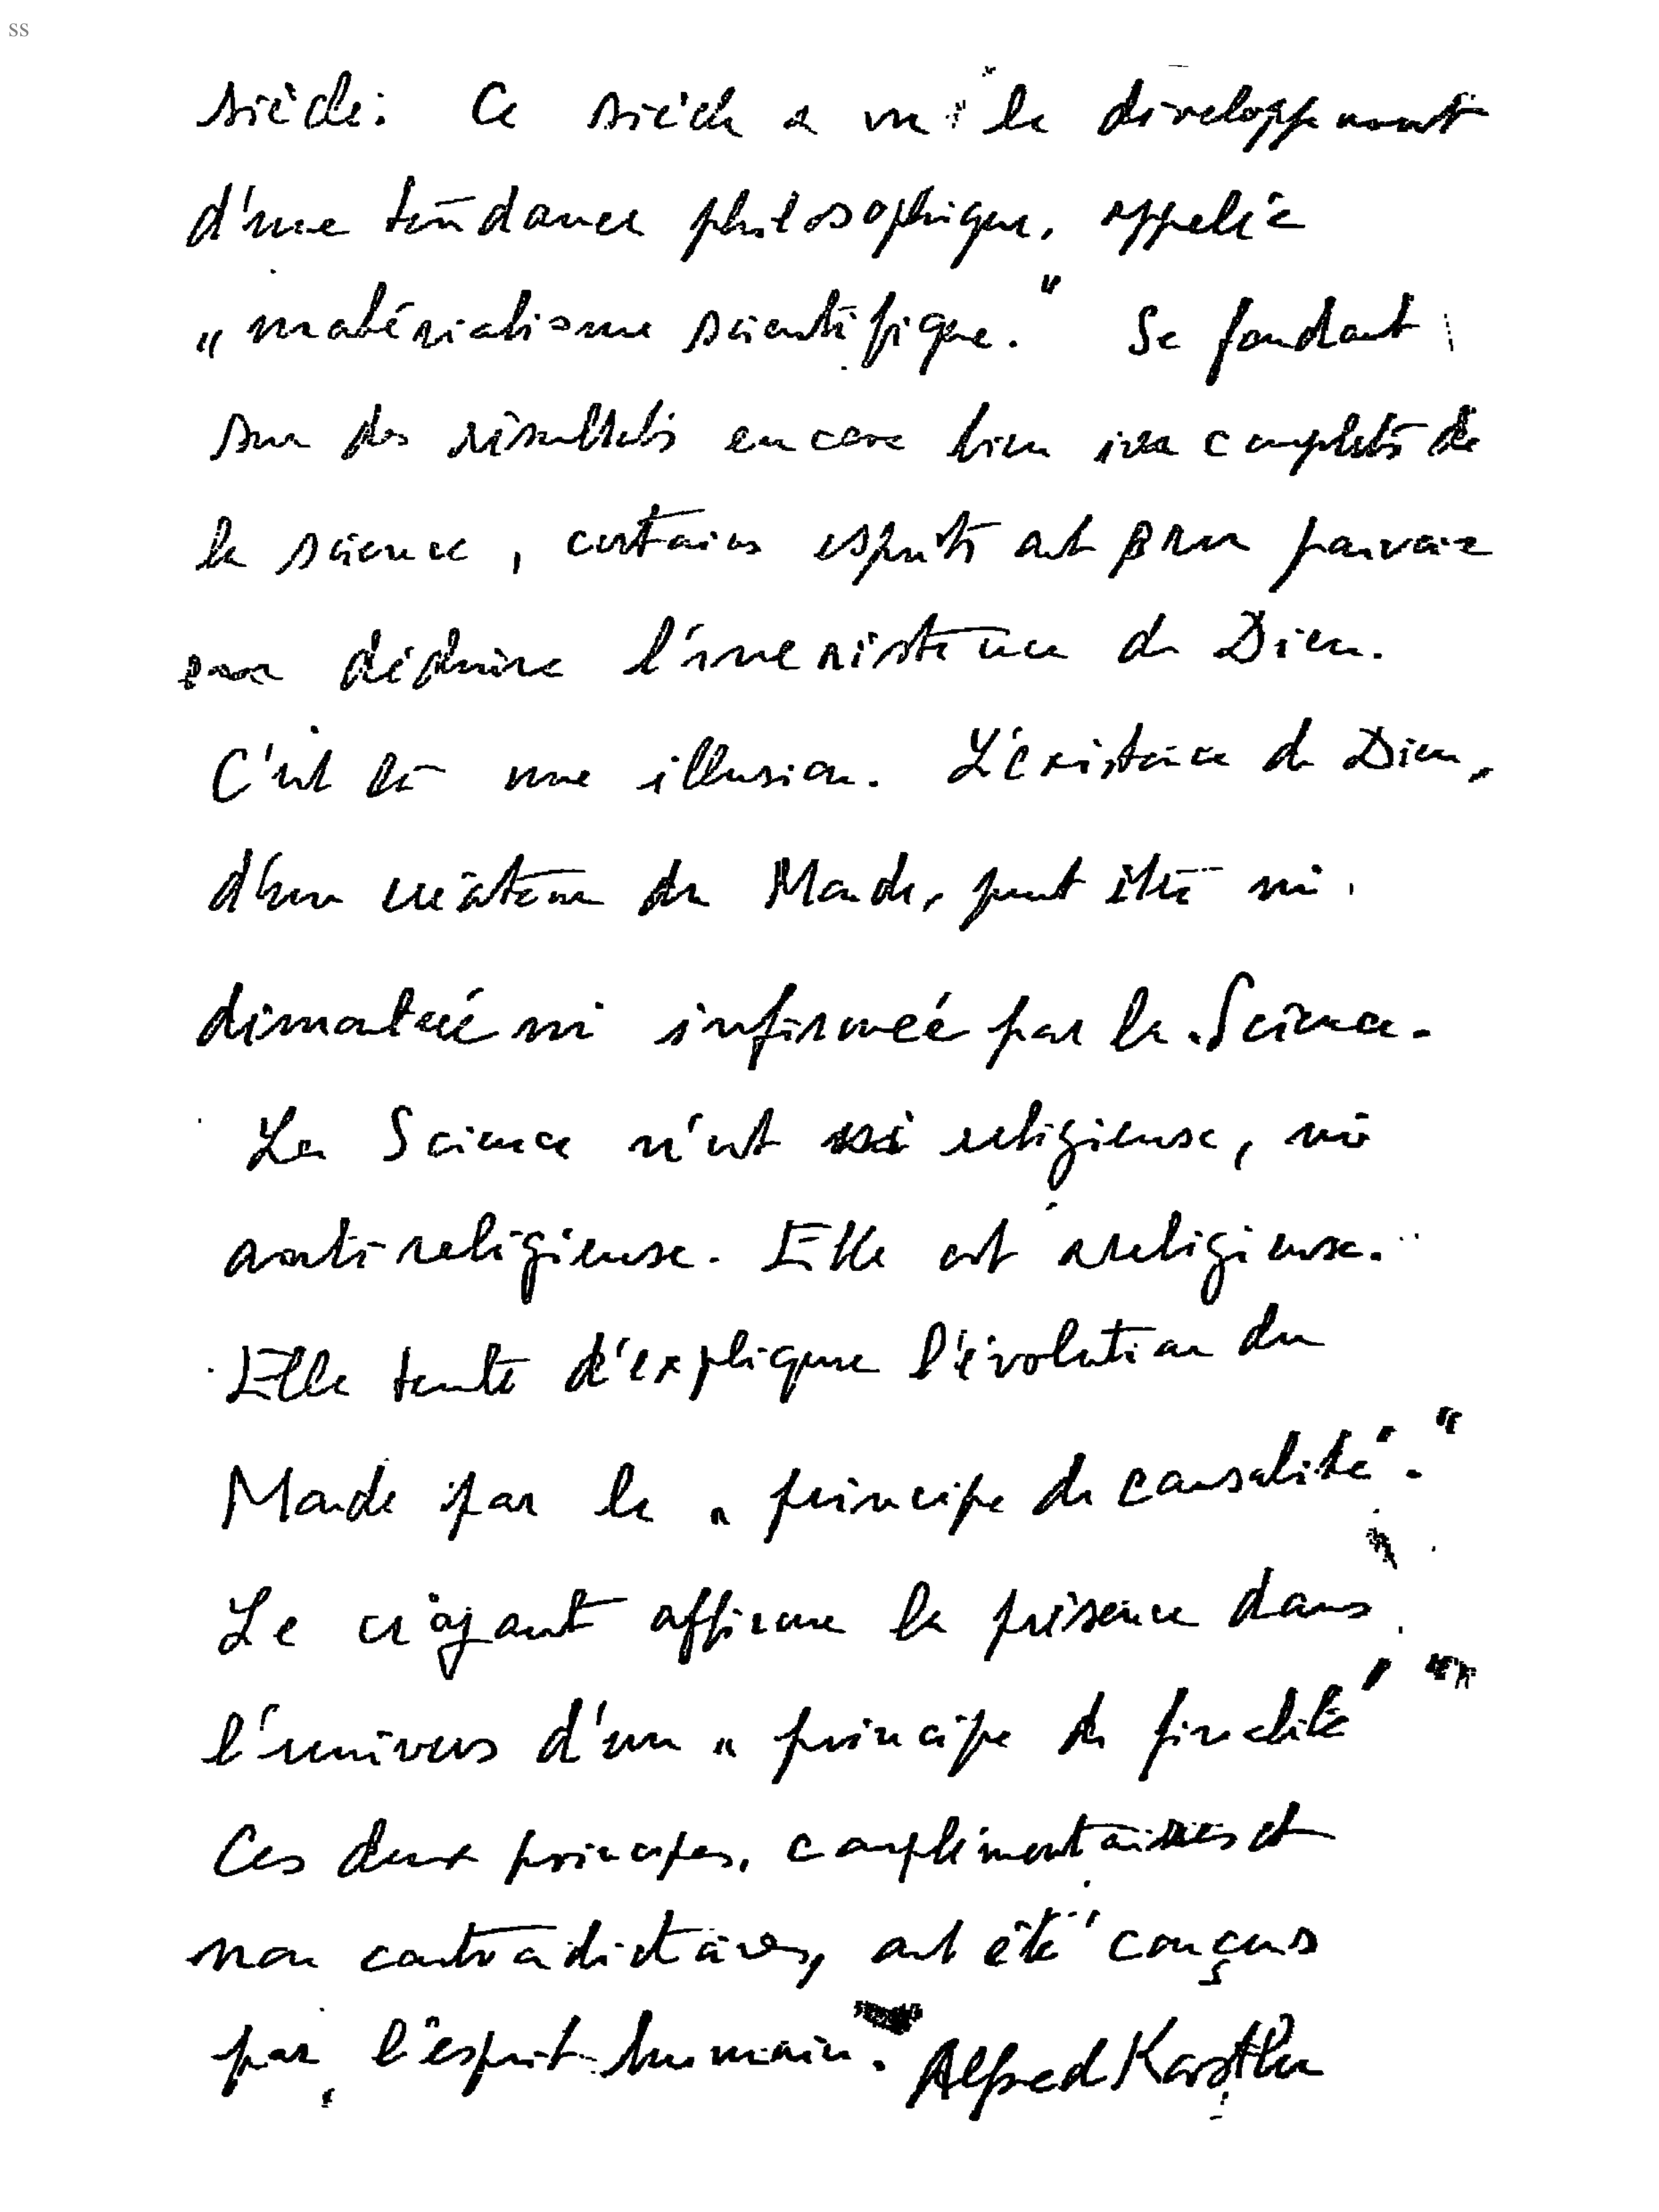 ss
siècle. Ce siècle a vu le développement
d'une tendance philosophique, appelée
„matérialisme scientifique." Se fondant
sur des résultats encore bien incomplets de
la science, certains esprits ont pu pouvoir
en déduire l'inexistence de Dieu.
C'est là une illusion. L'existence de Dieu,
d'un créateur du Monde, peut être ni
démontrée ni infirmée par la Science.
La Science n'est ni religieuse, ni
antireligieuse. Elle est areligieuse.
Elle tente d'expliquer l'évolution du
Monde par le „principe de causalité."
Le croyant affirme la présence dans
l'univers d'un „principe de finalité"
Ces deux principes, complémentaires et
non contradictoires, ont été conçus
par l'esprit humain. Alfred Kastler